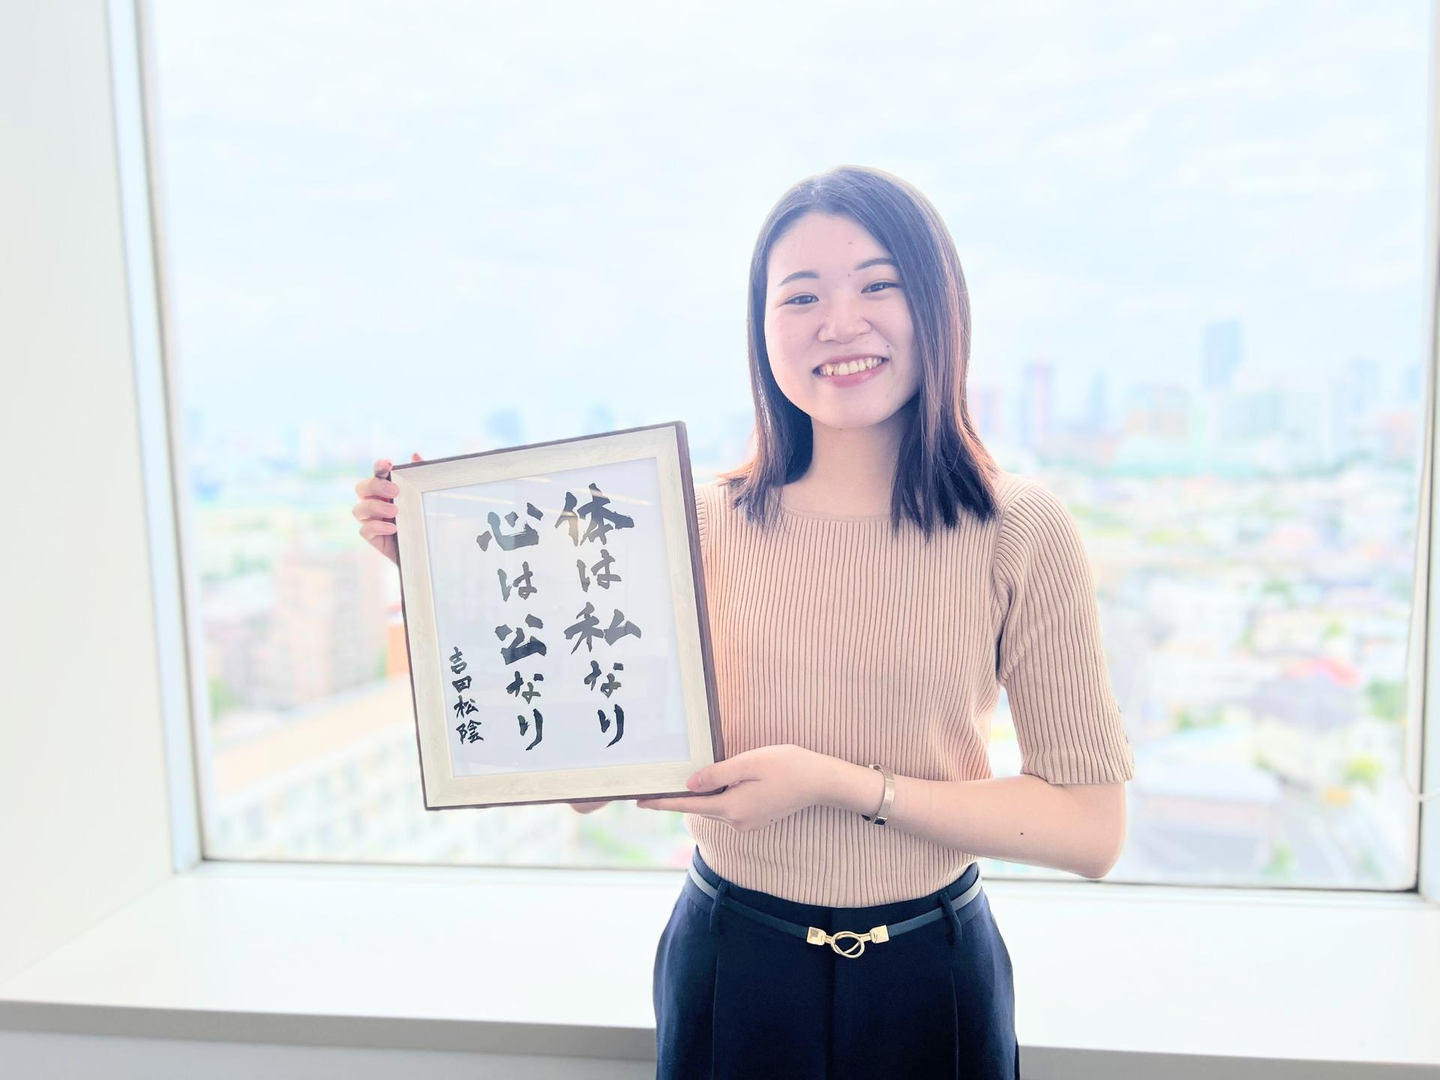 体は私なり
心は公なり
吉田松陰